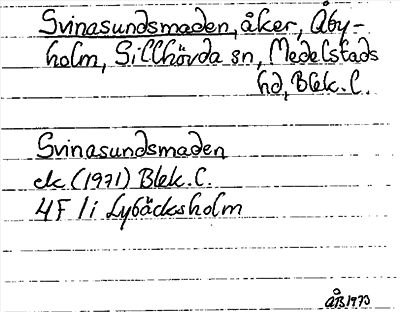 Svinasundsmaden, åker, Åby-
holm, Sillhövda sn, Medelstads
hd, Blek. l.
Svinasundsmaden
ek. (1971) Blek. l.
4F 1i Lybäcksholm
ÅB 1973